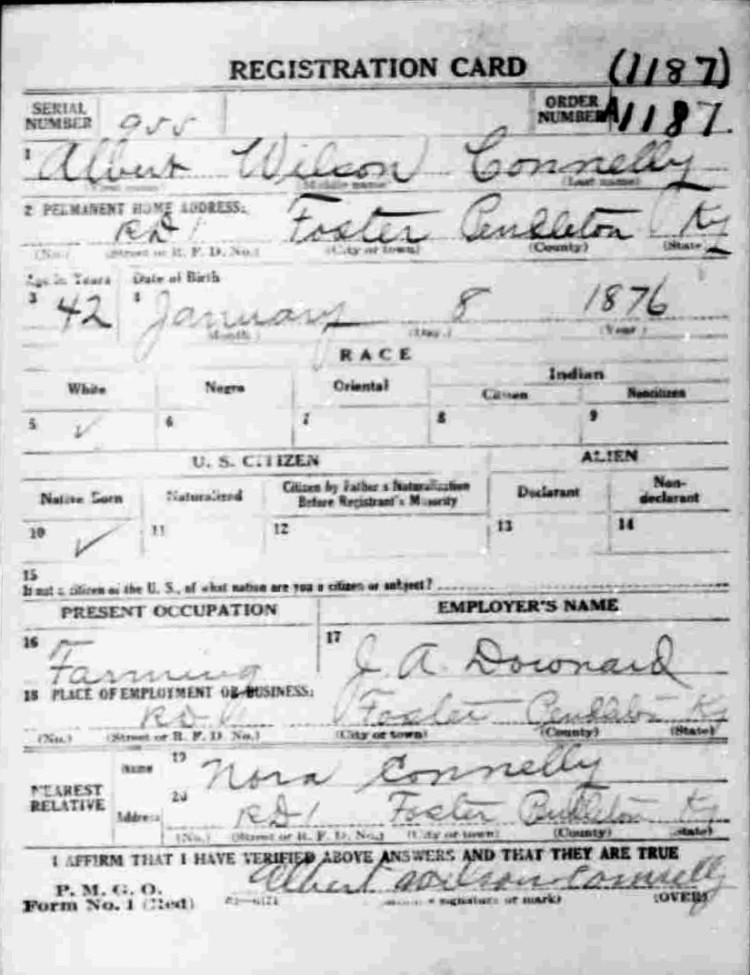 REGISTRATION CARD (1187)
SERIAL NUMBER 955 ORDER NUMBER A1187.
1 Albert Wilson Connelly
(First name) (Middle name) (Last name)
2 PERMANENT HOME ADDRESS:
RD 1 Foster Pendleton Ky
(No.) (Street or R. F. D. No.) (City or town) (County) (State)
Age in Years Date of Birth
3 42 4 January 8 1876
(Month.) (Day.) (Year.)
RACE
White Negro Oriental Indian
Citizen Noncitizen
5 ✓ 6 7 8 9
U. S. CITIZEN ALIEN
Native Born Naturalized Citizen by Father's Naturalization Before Registrant's Majority Declarant Non-declarant
10 ✓ 11 12 13 14
15
If not a citizen of the U. S., of what nation are you a citizen or subject?
PRESENT OCCUPATION EMPLOYER'S NAME
16 Farming 17 J. A. Downard
18 PLACE OF EMPLOYMENT OR BUSINESS:
RD 1 Foster Pendleton Ky
(No.) (Street or R. F. D. No.) (City or town) (County) (State)
NEAREST RELATIVE
Name 19 Nora Connelly
Address 20 RD 1 Foster Pendleton Ky
(No.) (Street or R. F. D. No.) (City or town) (County) (State)
I AFFIRM THAT I HAVE VERIFIED ABOVE ANSWERS AND THAT THEY ARE TRUE
P. M. G. O.
Form No. 1 (Red) Albert Wilson Connelly
signature or mark) (OVER)